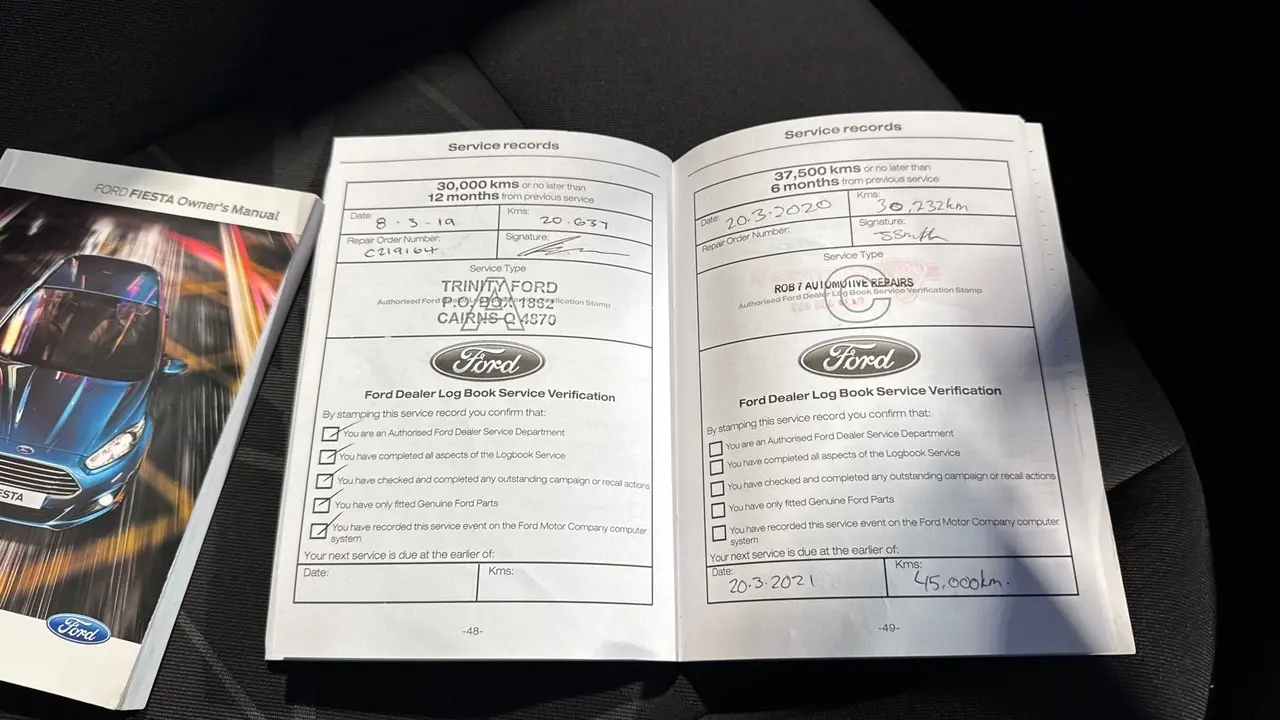 FORD FIESTA Owner's Manual
FIESTA
Ford
Service records
30,000 kms or no later than
12 months from previous service
Date: 8.3.19
Kms: 20.637
Repair Order Number: C219164
Signature:
Service Type
A
TRINITY FORD
Authorised Ford Dealer Log Book Service Verification Stamp
P.O. BOX 1892
CAIRNS Q 4870
Ford
Ford Dealer Log Book Service Verification
By stamping this service record you confirm that:
You are an Authorised Ford Dealer Service Department
You have completed all aspects of the Logbook Service
You have checked and completed any outstanding campaign or recall actions
You have only fitted Genuine Ford Parts
You have recorded this service event on the Ford Motor Company computer
system
Your next service is due at the earlier of:
Date:
Kms:
-48-
Service records
37,500 kms or no later than
6 months from previous service
Date: 20.3.2020
Kms: 30,232km
Repair Order Number:
Signature: SSmith
Service Type
C
ROB 7 AUTOMOTIVE REPAIRS
Authorised Ford Dealer Log Book Service Verification Stamp
Ford
Ford Dealer Log Book Service Verification
By stamping this service record you confirm that:
You are an Authorised Ford Dealer Service Department
You have completed all aspects of the Logbook Service
You have checked and completed any outstanding campaign or recall actions
You have only fitted Genuine Ford Parts
You have recorded this service event on the Ford Motor Company computer
system
Your next service is due at the earlier of:
Date: 20.3.2021
Kms: 45,000km.
-49-